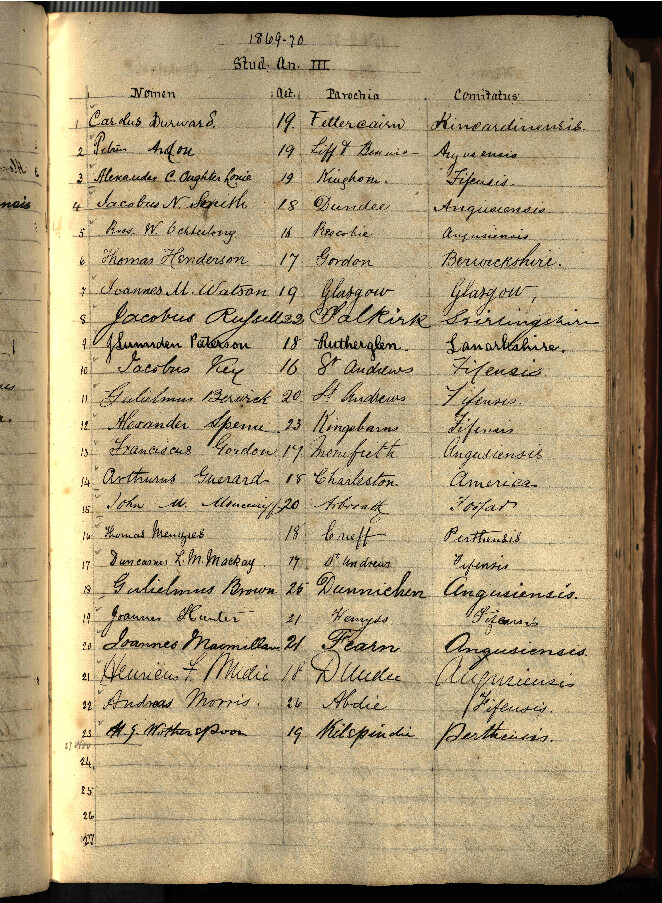 1869-70
Stud. An. III
Nomen Aet. Parochia Comitatus
1 Carolus Durward. 19. Fettercairn Kincardinensis.
2 Petrus 19 Liff & Benvie Angusensis
3 Alexander C. Oughterlonie 19 Kinghorn. Fifensis.
4 Jacobus N. Smith 18 Dundee Angusiensis
5 W. Ochterlony 16 Rescobie Angusiensis
6 Thomas Henderson 17 Gordon Berwickshire.
7 Joannes M. Watson 19 Glasgow Glasgow,
8 Jacobus Russell 33 Falkirk Stirlingshire
9 J Lumsden Paterson 18 Rutherglen. Lanarkshire.
10 Jacobus Key 16 St Andrews Fifensis.
11 Gulielmus Berwick 20 St. Andrews Fifensis.
12 Alexander Spence 23 Kingsbarns Fifensis
13 Franciscus Gordon 17 Monifieth Angusiensis
14 Arthurus Guerard 18 Charleston America
15 John M. Moncrieff 20 Arbroath Forfar
16 Thomas Menzies 18 Crieff Perthensis
17 Duncanus L. M. Mackay 17 St Andrews Fifensis
18 Gulielmus Brown 25 Dunnichen Angusiensis.
19 Joannes Hunter 21 Wemyss Fifensis
20 Joannes Macmillan 21 Fearn Angusiensis.
21 Henricus F. Mudie 18 Dundee Angusiensis
22 Andreas Morris. 26 Abdie Fifensis.
23 H. G. Wotherspoon 19 Kilspindie Perthensis.
24
25
26
27